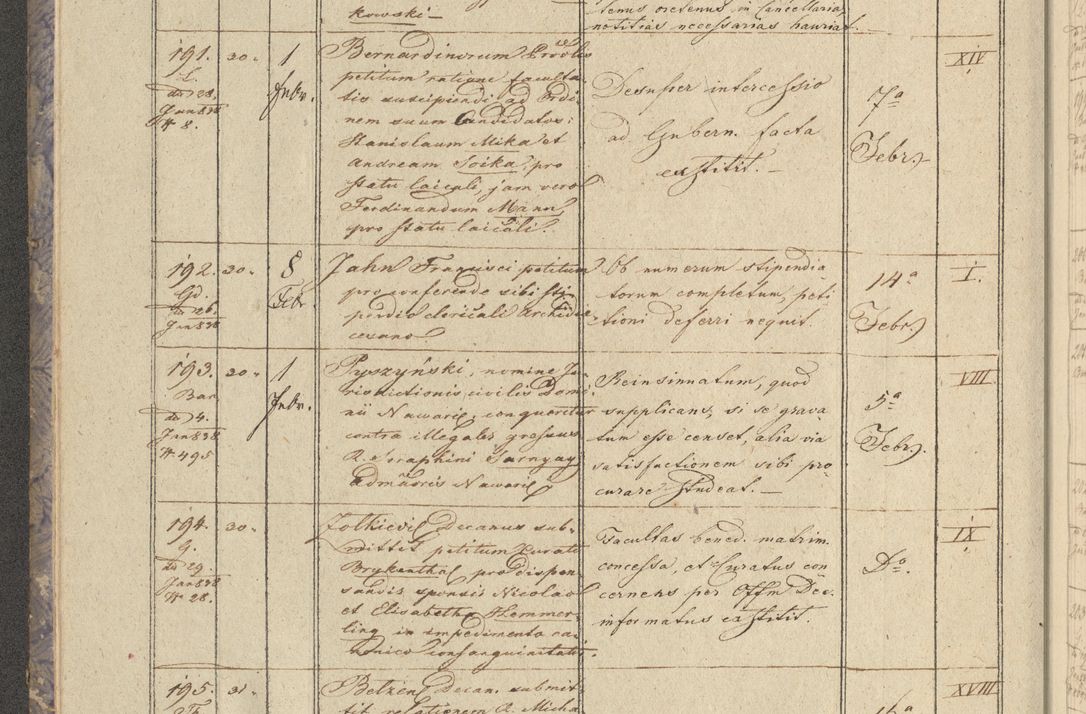 kowski –
tenus oretenus in Cancellaria
notitias necessarias hauriat.
191. 30. 1 Febr.
L.
dto 28.
Jan 838
N 8.
Bernardinorum Provles
petitum ratione faculta-
tis suscipiendi ad Ordi-
nem suum Candidatos:
Stanislaum Mika et
Andream Soika, pro
statu laicali, jam vero
Ferdinandum Mann,
pro statu laicali.
Desuper intercessio
ad Gubern. facta
exstitit. –
7a
Febr.
XIV
192. 30. 8
Febr.
Gd.
dto 26.
Jan 838
Jahn Francisci petitum
pro conferendo sibi sti-
pendio clericali Archidio-
cesano
Ob numerum stipendia-
torum completum, peti-
tioni deferri nequit.
14a
Febr.
I.
193. 30. 1
Febr.
Bar
dto 4.
Jan 838
N 495.
Pyszyński, nomine Ju-
risdictionis civilis Domi-
nii Nawarie, conqueritur
contra illegales gressus
R. Seraphini Sarnyay
Admdoris Nawarie
Reinsinuatum, quod
supplicans, si se grava-
tum esse censet, alia via
satisfactionem sibi pro-
curare studeat. –
5a
Febr.
VIII
194. 30.
G.
dto 29.
Jan 838
N 28.
Zolkievie Decanus sub-
mittit petitum Curati
Brykenthal pro dispen-
sandis sponsis Nicolao
et Elisabetha Hemmer-
ling in impedimento ca-
nonico consanguinitatis.
Facultas bened. matrim.
concessa, et Curatus con-
cernens per Offm Dec.
informatus exstitit.
Do.
IX
195. 31.
Belzen. Decan. submit-
tit relationem R. Micha
16a
XVIII